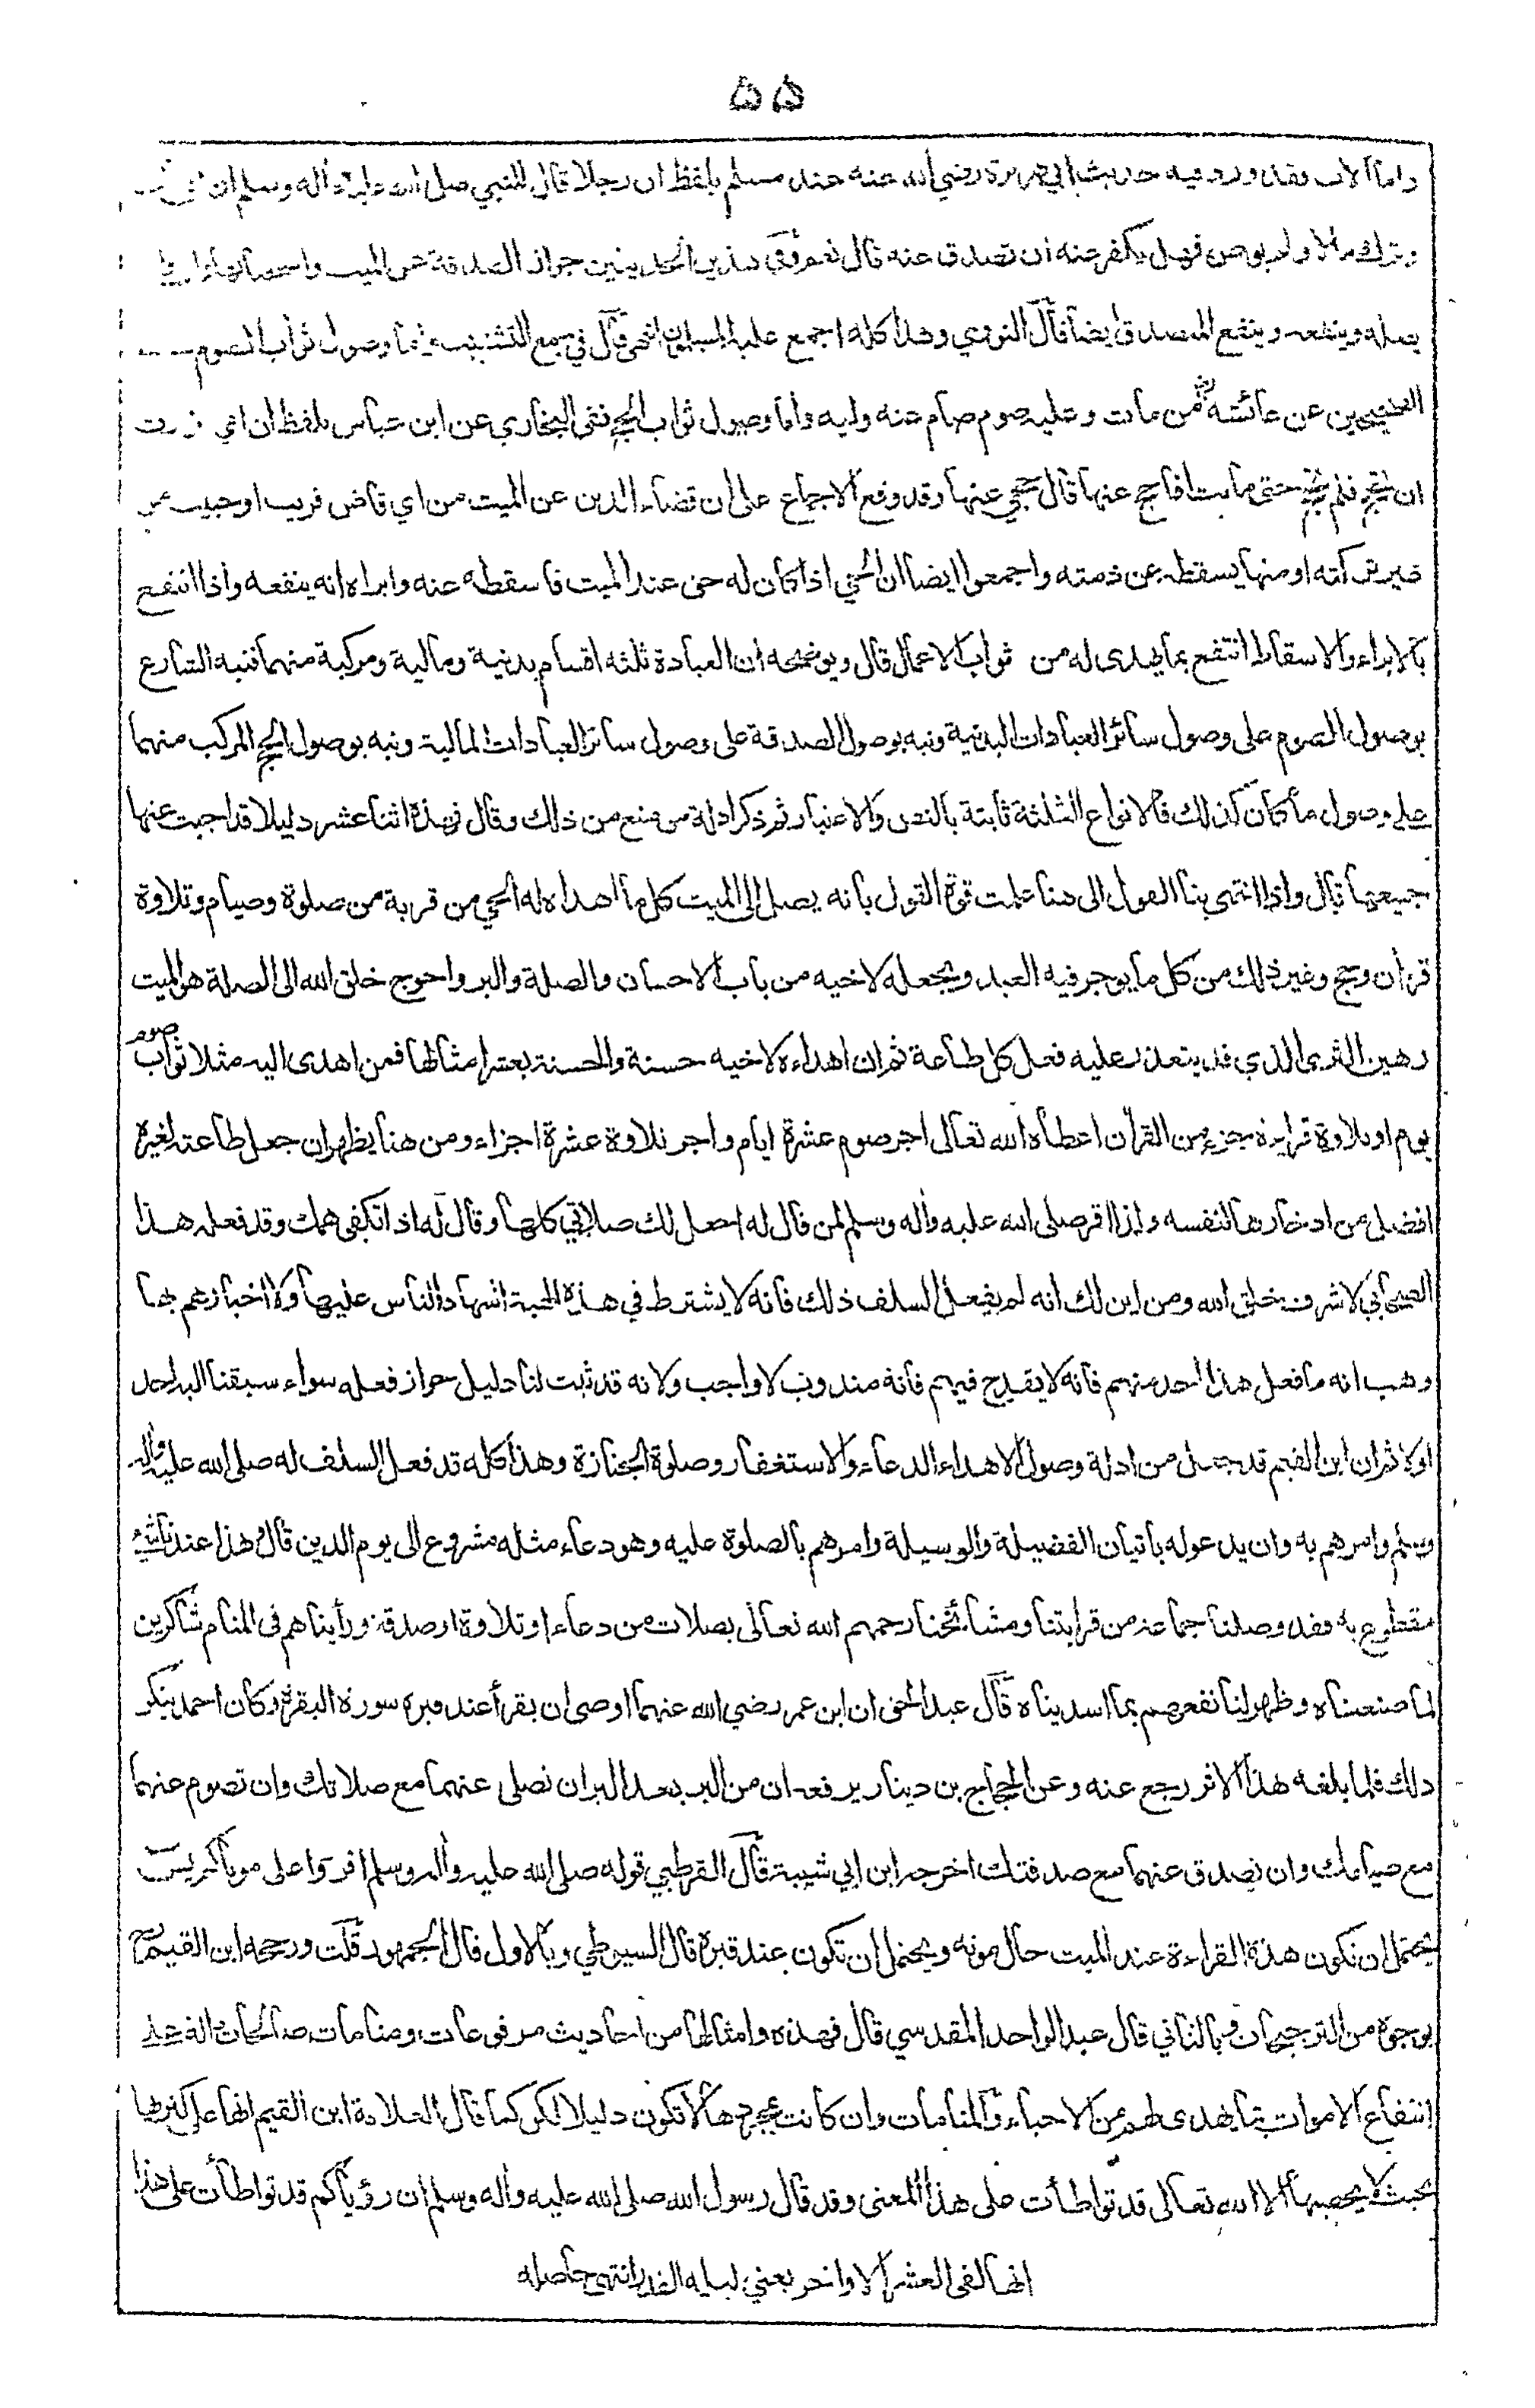 ۵۵
واما الاب فقد ورد فيه حديث ابي هريرة رضي الله عنه عند مسلم بلفظ ان رجلا قال للنبي صلى الله عليه وأله وسلم ان ابي
وترك مالا ولم يوص فهل يكفر عنه ان تصدق عنه قال نعم وفي هذين الحديثين جواز الصدقة عن الميت واستحبابها وان ثوابها
يصله وينفعه وينفع المتصدق ايضا قال النووي وهذا كله اجمع عليه المسلمون انتهى قال في جمع التشتيت واما وصول ثواب الصوم
الصحيحين عن عائشة رض من مات وعليه صوم صام عنه وليه وأما وصول ثواب الحج ففي البخاري عن ابن عباس بلفظ ان امي نذرت
ان تحج فلم تحج حتى ماتت افاحج عنها قال حجي عنها وقد وقع الاجماع على ان قضاء الدين عن الميت من اي قاض قريب او حبيب من
غير تركته او منها يسقطه عن ذمته واجمعوا ايضا ان الحي اذا كان له حق عند الميت فاسقطه عنه وابراه انه ينفعه واذا انتفع
بالابراء والاسقاط انتفع بما يهدى له من ثواب الاعمال قال ويوضحه ان العبادة ثلثه اقسام بدنية ومالية ومركبة منهما فنبه الشارع
بوصول الصوم على وصول سائر العبادات البدنية ونبه بوصول الصدقة على وصول سائر العبادات المالية ونبه بوصول الحج المركب منهما
على وصول ما كان كذلك فالانواع الثلثة ثابتة بالنص والاعتبار ثم ذكر ادلة من منع من ذلك وقال فهذه اثنا عشر دليلا قد اجبت عنها
جميعها قال واذا انتهى بنا القول الى هنا علمت قوة القول بانه يصل الى الميت كل ما اهداه له الحي من قربة من صلوة وصيام وتلاوة
قرأن وحج وغير ذلك من كل ما يوجر فيه العبد ويجعله لاخيه من باب الاحسان والصلة والبر واحوج خلق الله الى الصلة هو الميت
رهين الثرى الذي قد يتعذر عليه فعل كل طاعة ثم ان اهداءه لاخيه حسنة والحسنة بعشر امثالها فمن اهدى اليه مثلا ثواب صوم
يوم او تلاوة قراءة جزء من القرأن اعطاه الله تعالى اجر صوم عشرة ايام واجر تلاوة عشرة اجزاء ومن هنا يظهر ان جعل طاعته لغيره
افضل من ادخارها لنفسه ولذا اقر صلى الله عليه وأله وسلم لمن قال له اجعل لك صلاتي كلها وقال له اذا تكفى همك وقد فعله هذا
الصحابي لاشرف خلق الله ومن اين لك انه لم يفعل السلف ذلك فانه لا يشترط في هذه الهبة اشهاد الناس عليها ولا اخبارهم بها
وهب انه ما فعل هذا احد منهم فانه لا يقدح فيهم فانه مندوب لا واجب ولانه قد ثبت لنا دليل جواز فعله سواء سبقنا اليه احد
اولا ثم ان ابن القيم قد جعل من ادلة وصول الاهداء الدعاء والاستغفار وصلوة الجنازة وهذا كله قد فعل السلف له صلى الله عليه وأله
وسلم وامرهم به وان يدعو له باتيان الفضيلة والوسيلة وامرهم بالصلوة عليه وهو دعاء مثله مشروع الى يوم الدين قال وهذا عندنا شئ
مقطوع به فقد وصلنا جماعة من قرابتنا ومشائخنا رحمهم الله تعالى بصلات من دعاء او تلاوة او صدقة ورأيناهم في المنام شاكرين
لما صنعناه وظهر لنا نفعهم بما اسديناه قال عبد الحق ان ابن عمر رضي الله عنهما اوصى ان يقرأ عند قبره سورة البقرة وكان احمد ينكر
ذلك فلما بلغه هذا الاثر رجع عنه وعن الحجاج بن دينار يرفعه ان من البر بعد البر ان تصلى عنهما مع صلاتك وان تصوم عنهما
مع صيامك وان تصدق عنهما مع صدقتك اخرجه ابن ابي شيبة قال القرطبي قوله صلى الله عليه وأله وسلم اقرؤا على موتاكم يس
يحتمل ان تكون هذه القراءة عند الميت حال موته ويحتمل ان تكون عند قبره قال السيوطي وبالاول قال الجمهور قلت ورجحه ابن القيم رح
بوجوه من الترجيحات وبالثاني قال عبد الواحد المقدسي قال فهذه وامثالها من احاديث مرفوعات ومنامات صالحات دالة على
انتفاع الاموات بما يهدى لهم من الاحياء والمنامات وان كانت بمجردها لا تكون دليلا لكن كما قال العلامة ابن القيم انها على كثرتها
بحيث لا يحصيها الا الله تعالى قد تواطأت على هذا المعنى وقد قال رسول الله صلى الله عليه وأله وسلم ان رؤياكم قد تواطأت على هذا
انها لفي العشر الاواخر يعني ليلة القدر انتهى حاصله